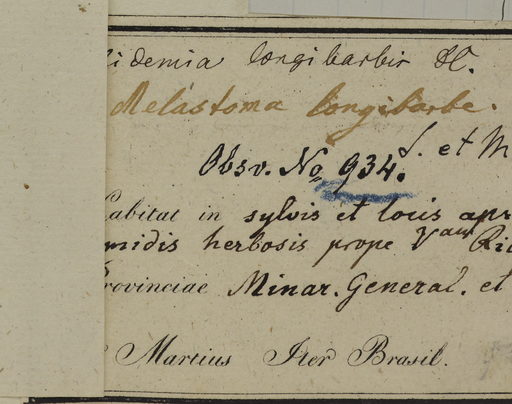 idemia longibarbis DC.
Melastoma longibarbe.
Obsv. No 934. et M
abitat in sylvis et locis apr
midis herbosis prope Ric
rovinciae Minar. General. et
Martius Iter Brasil.